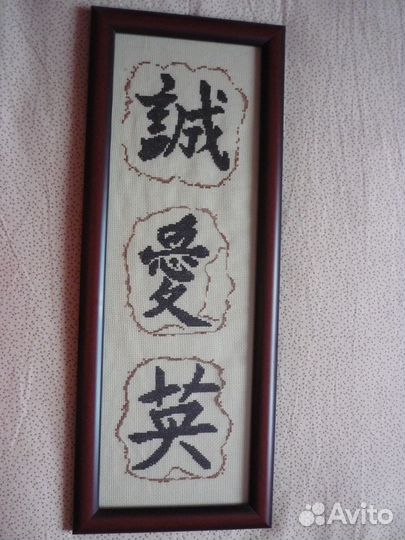 誠
愛
英
Avito